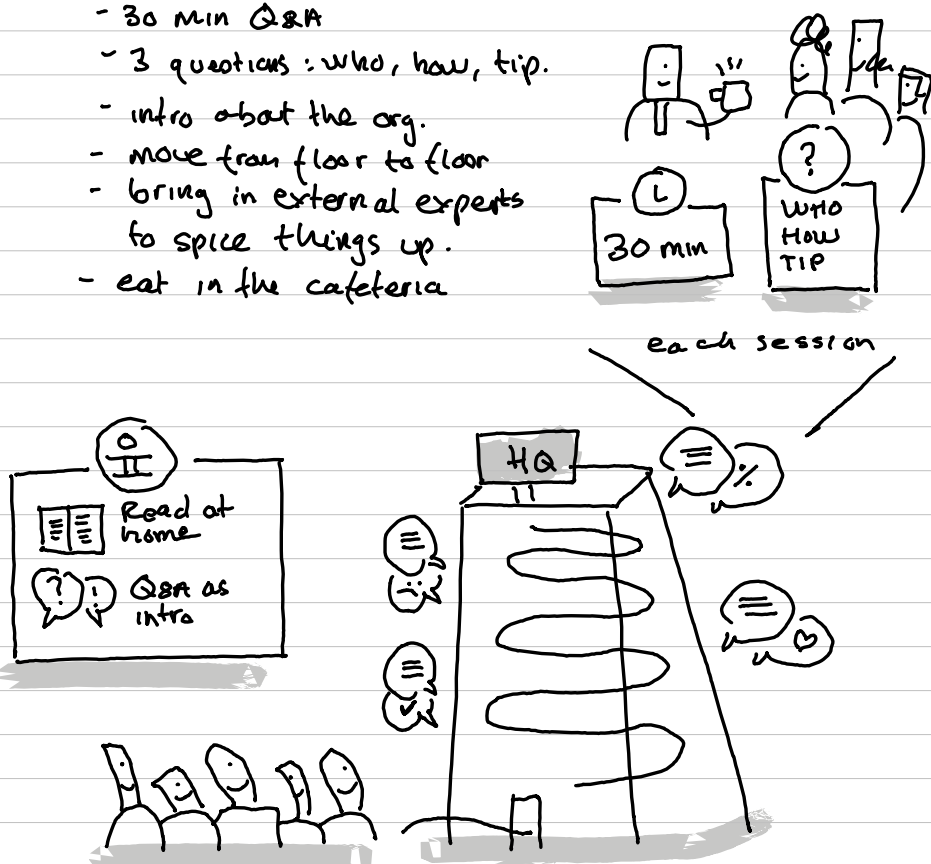 - 30 min Q&A
- 3 questions: who, how, tip.
- intro about the org.
- move from floor to floor
- bring in external experts
to spice things up.
- eat in the cafeteria
30 min
?
WHO
HOW
TIP
each session
HQ
%
Read at
home
? !
Q&A as
intro